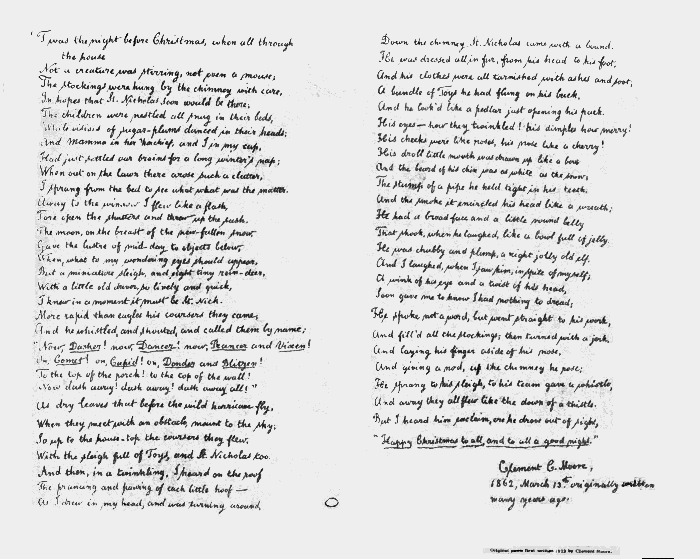 'Twas the night before Christmas, when all through
the house
Not a creature was stirring, not even a mouse;
The stockings were hung by the chimney with care,
In hopes that St. Nicholas soon would be there;
The children were nestled all snug in their beds,
While visions of sugar-plums danced in their heads;
And Mamma in her 'kerchief, and I in my cap,
Had just settled our brains for a long winter's nap;
When out on the lawn there arose such a clatter,
I sprang from the bed to see what was the matter.
Away to the window I flew like a flash,
Tore open the shutters and threw up the sash.
The moon, on the breast of the new-fallen snow
Gave the lustre of mid-day to objects below,
When, what to my wondering eyes should appear,
But a miniature sleigh, and eight tiny rein-deer,
With a little old driver, so lively and quick,
I knew in a moment it must be St. Nick.
More rapid than eagles his coursers they came,
And he whistled, and shouted, and called them by name;
"Now, Dasher! now, Dancer! now, Prancer and Vixen!
On, Comet! on, Cupid! on, Donder and Blitzen!
To the top of the porch! to the top of the wall!
Now dash away! dash away! dash away all!"
As dry leaves that before the wild hurricane fly,
When they meet with an obstacle, mount to the sky;
So up to the house-top the coursers they flew,
With the sleigh full of Toys, and St. Nicholas too.
And then, in a twinkling, I heard on the roof
The prancing and pawing of each little hoof—
As I drew in my head, and was turning around,
Down the chimney St. Nicholas came with a bound.
He was dressed all in fur, from his head to his foot,
And his clothes were all tarnished with ashes and soot;
A bundle of Toys he had flung on his back,
And he look'd like a pedlar just opening his pack.
His eyes—how they twinkled! his dimples how merry!
His cheeks were like roses, his nose like a cherry!
His droll little mouth was drawn up like a bow
And the beard of his chin was as white as the snow;
The stump of a pipe he held tight in his teeth,
And the smoke it encircled his head like a wreath;
He had a broad face and a little round belly
That shook, when he laughed, like a bowl full of jelly.
He was chubby and plump, a right jolly old elf,
And I laughed, when I saw him, in spite of myself;
A wink of his eye and a twist of his head,
Soon gave me to know I had nothing to dread;
He spoke not a word, but went straight to his work,
And fill'd all the stockings; then turned with a jerk,
And laying his finger aside of his nose,
And giving a nod, up the chimney he rose;
He sprang to his sleigh, to his team gave a whistle,
And away they all flew like the down of a thistle.
But I heard him exclaim, ere he drove out of sight,
"Happy Christmas to all, and to all a good night."
Clement C. Moore,
1862, March 13th originally written
many years ago.
Original poem first written 1823 by Clement Moore.